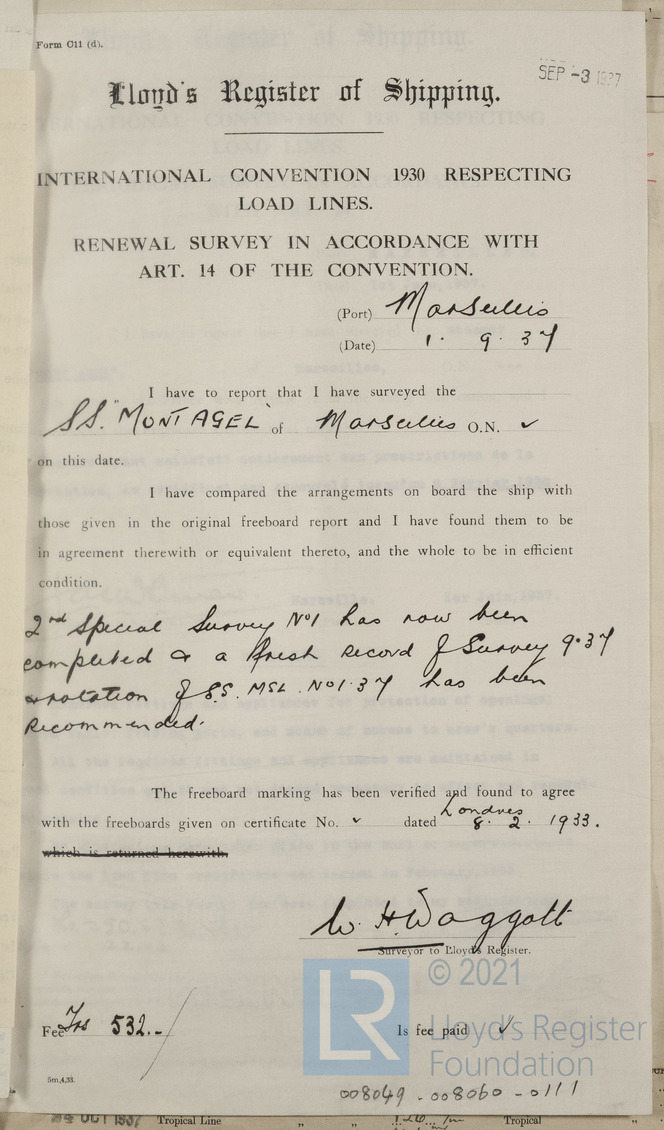 Form C11 (d).
SEP -3 1937
Lloyd's Register of Shipping.
INTERNATIONAL CONVENTION 1930 RESPECTING
LOAD LINES.
RENEWAL SURVEY IN ACCORDANCE WITH
ART. 14 OF THE CONVENTION.
(Port) Marseilles
(Date) 1. 9. 37
I have to report that I have surveyed the
S.S. "MONTAGEL" of Marseilles O.N. ✓
on this date.
I have compared the arrangements on board the ship with
those given in the original freeboard report and I have found them to be
in agreement therewith or equivalent thereto, and the whole to be in efficient
condition.
2nd Special Survey No1 has now been
completed & a fresh record of Survey 9.37
& notation of S.S. MSL. No1.37 has been
recommended.
The freeboard marking has been verified and found to agree
Londres
with the freeboards given on certificate No. ✓ dated 8. 2. 1933.
which is returned herewith.
W. H. Waggott
Surveyor to Lloyd's Register.
© 2021
Lloyd's Register
Foundation
LR
Fee Frs 532.-
Is fee paid ✓
5m,4,33.
008049-008060-0111
OCT 1937 Tropical Line " " Tropical "